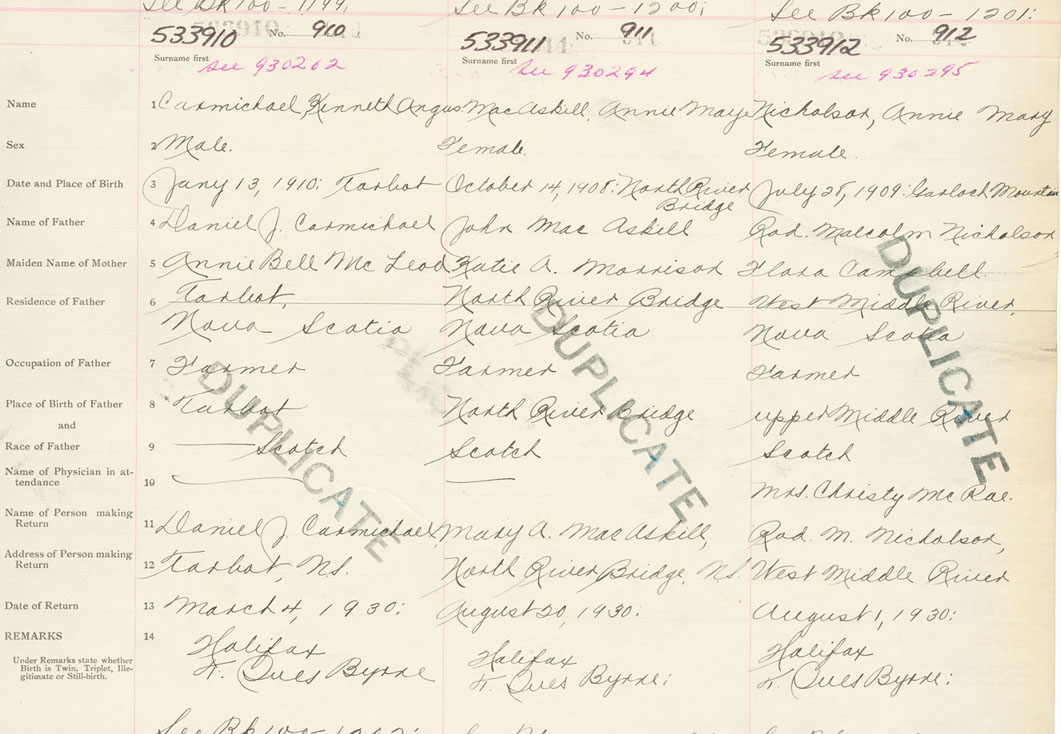 See Bk 100 - 1199;
See Bk 100 - 1200;
See Bk 100 - 1201:
533910 No. 910
533911 No. 911
533912 No. 912
Surname first
Surname first
Surname first
See 930262
See 930294
See 930295
Name 1 Carmichael, Kenneth Angus
MacAskill, Annie Maye
Nicholson, Annie Mary
Sex 2 Male.
Female.
Female.
Date and Place of Birth 3 Jany 13, 1910: Tarbot
October 14, 1908: North River Bridge
July 28, 1909: Garloch Mountain
Name of Father 4 Daniel J. Carmichael
John Mac Askill
Rod. Malcolm Nicholson
Maiden Name of Mother 5 Annie Bell Mc Leod
Katie A. Morrison
Flora Campbell.
Residence of Father 6 Tarbot
North River Bridge
West Middle River,
Nova Scotia
Nova Scotia
Nova Scotia
Occupation of Father 7 Farmer
Farmer
Farmer
Place of Birth of Father 8 Tarbot
North River Bridge
upper Middle River
and
Race of Father 9 Scotch
Scotch
Scotch
Name of Physician in at-
tendance 10
Mrs. Christy Mc Rae.
Name of Person making
Return 11 Daniel J. Carmichael,
Mary A. MacAskill,
Rod. M. Nicholson,
Address of Person making
Return 12 Tarbot, NS.
North River Bridge, NS.
West Middle River
Date of Return 13 March 4, 1930:
August 20, 1930:
August 1, 1930:
REMARKS 14
Under Remarks state whether
Birth is Twin, Triplet, Ille-
gitimate or Still-birth.
Halifax
Halifax
Halifax
Ives Byrne
Ives Byrne:
Ives Byrne:
DUPLICATE
DUPLICATE
DUPLICATE